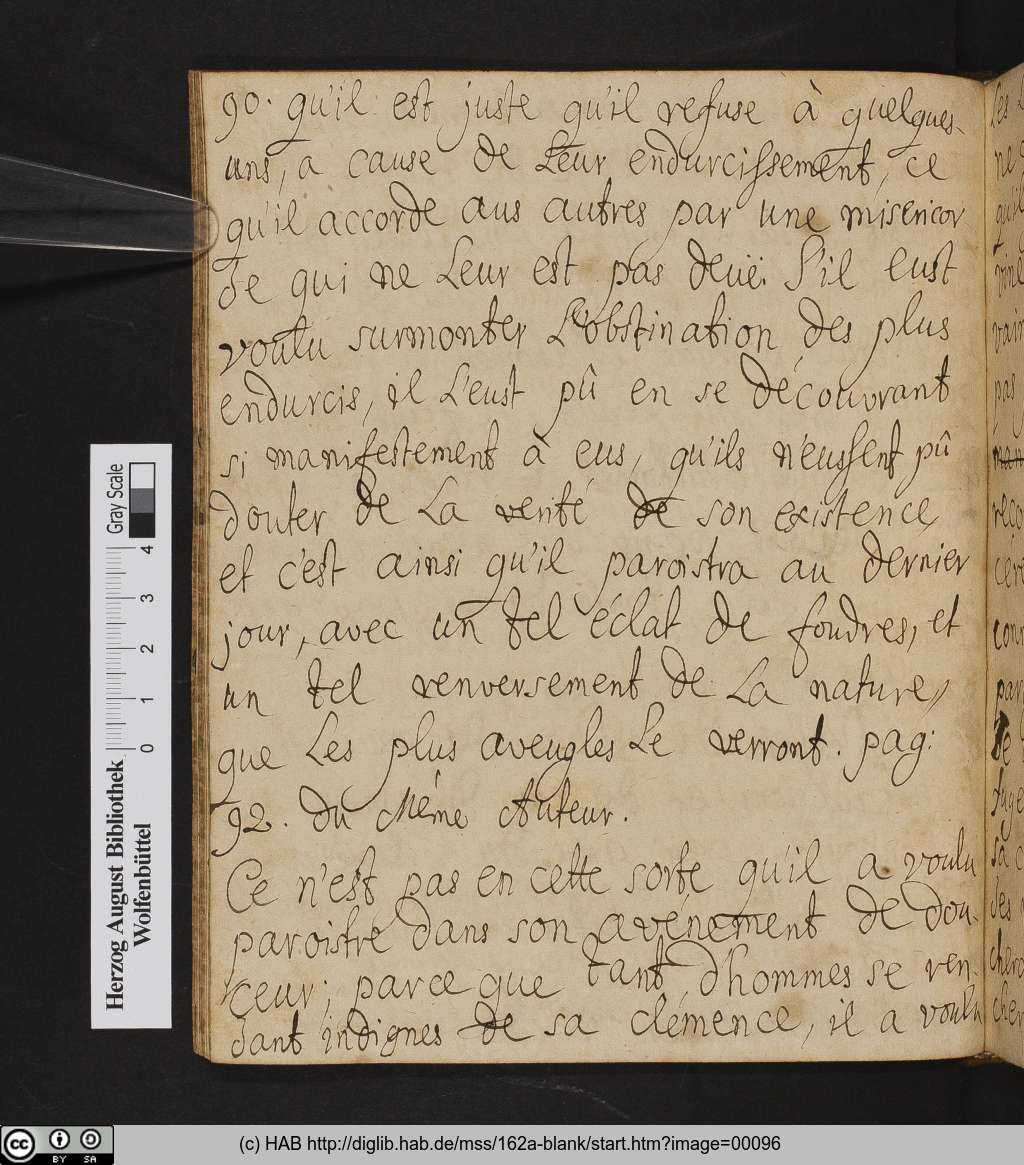 90. qu'il est juste qu'il refuse à quelques-
uns, a cause de Leur endurcissement, ce
qu'il accorde aus autres par une misericor
de qui ne Leur est pas deüe. S'il eust
voulu surmonter L'obstination des plus
endurcis, il L'eust pû en se découvrant
si manifestement à eus, qu'ils n'eussent pû
douter de La verité de son existence,
et c'est ainsi qu'il paroistra au dernier
jour, avec un tel éclat de foudres, et
un tel renversement de La nature,
que Les plus aveugles Le verront. pag:
92. du Même Auteur.
Ce n'est pas en cette sorte qu'il a voulu
paroistre dans son avénement de dou-
ceur; parce que tant d'hommes se ren-
dant indignes de sa clémence, il a voulu
Gray Scale
4
3
2
1
0
Herzog August Bibliothek
Wolfenbüttel
cc BY SA
(c) HAB http://diglib.hab.de/mss/162a-blank/start.htm?image=00096